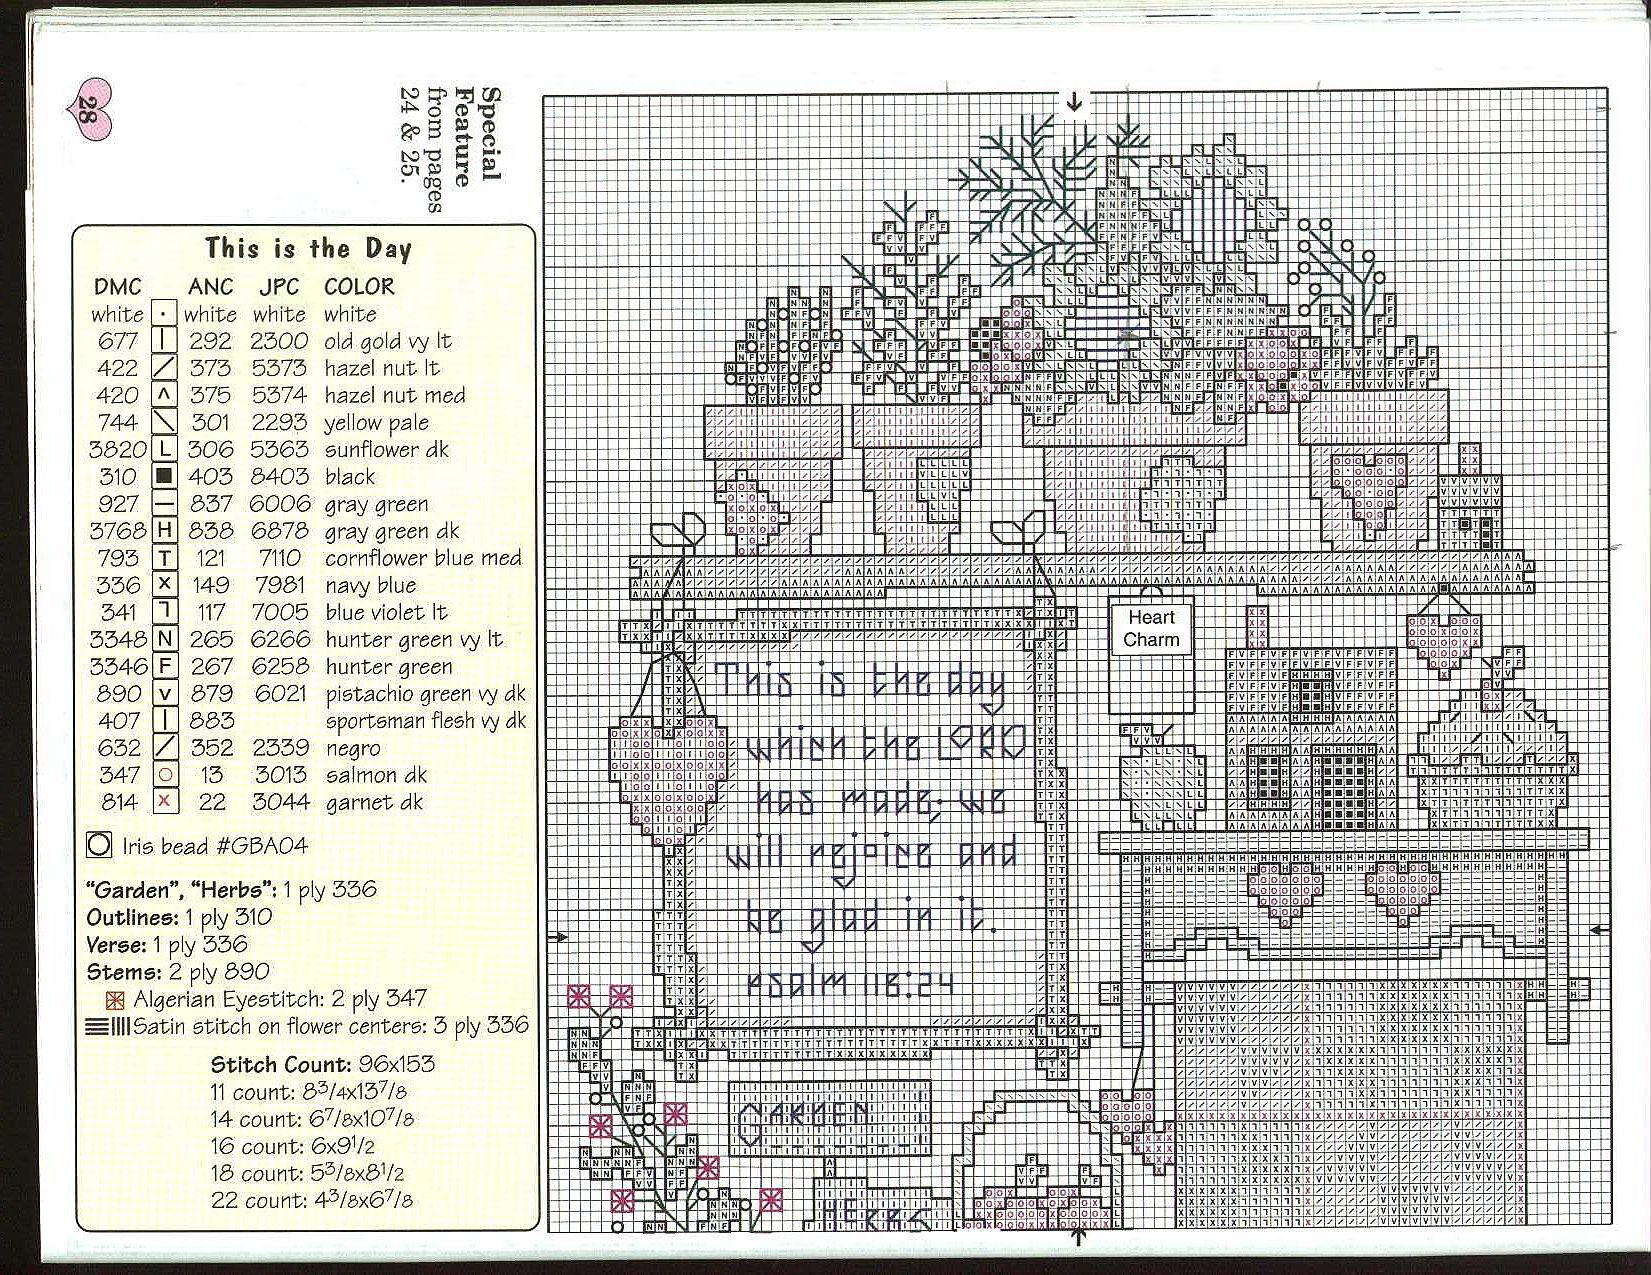 28
Special
Feature
from pages
24 & 25.
This is the Day
DMC ANC JPC COLOR
white · white white white
677 | 292 2300 old gold vy lt
422 / 373 5373 hazel nut lt
420 ^ 375 5374 hazel nut med
744 \ 301 2293 yellow pale
3820 L 306 5363 sunflower dk
310 ■ 403 8403 black
927 — 837 6006 gray green
3768 H 838 6878 gray green dk
793 T 121 7110 cornflower blue med
336 x 149 7981 navy blue
341 ㄱ 117 7005 blue violet lt
3348 N 265 6266 hunter green vy lt
3346 F 267 6258 hunter green
890 v 879 6021 pistachio green vy dk
407 | 883 sportsman flesh vy dk
632 / 352 2339 negro
347 o 13 3013 salmon dk
814 x 22 3044 garnet dk
Iris bead #GBA04
"Garden", "Herbs": 1 ply 336
Outlines: 1 ply 310
Verse: 1 ply 336
Stems: 2 ply 890
Algerian Eyestitch: 2 ply 347
Satin stitch on flower centers: 3 ply 336
Stitch Count: 96x153
11 count: 8 3/4x13 7/8
14 count: 6 7/8x10 7/8
16 count: 6x9 1/2
18 count: 5 3/8x8 1/2
22 count: 4 3/8x6 7/8
Heart
Charm
This is the day
which the LORD
has made; we
will rejoice and
be glad in it.
psalm 118:24
GARDEN
HERBS